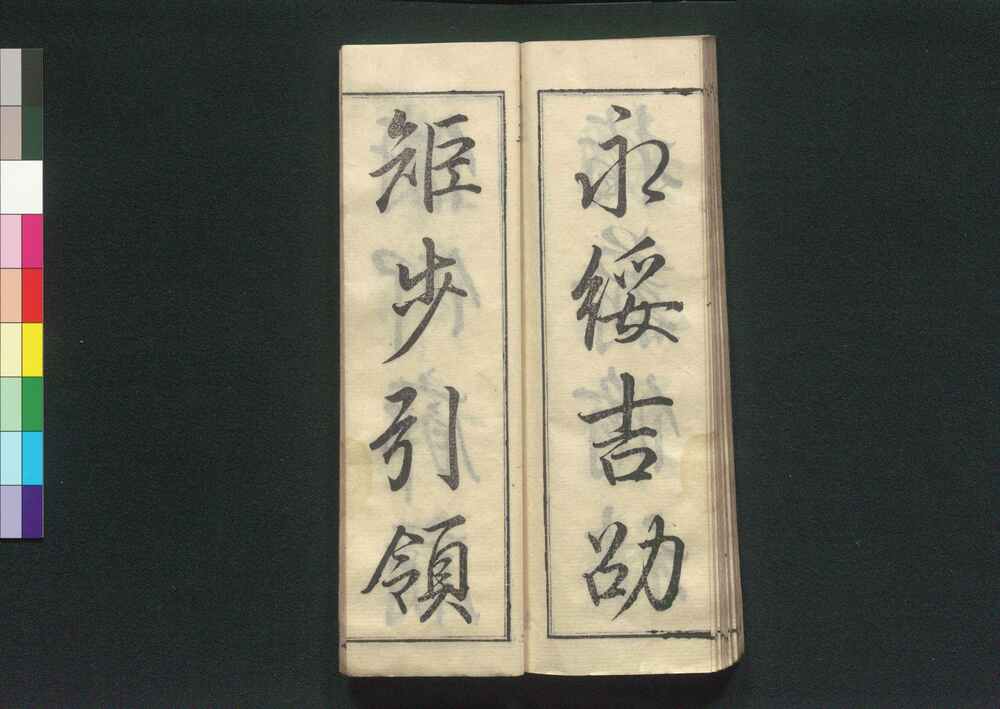 永綏吉劭
矩步引領